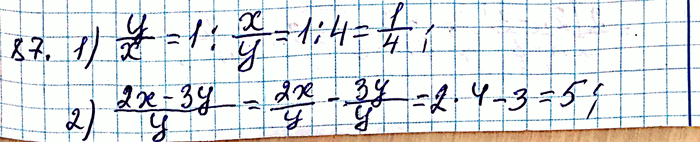 87. 1) y/x = 1 : x/y = 1 : 4 = 1/4 ;
2) (2x - 3y)/y = 2x/y - 3y/y = 2 · 4 - 3 = 5 ;